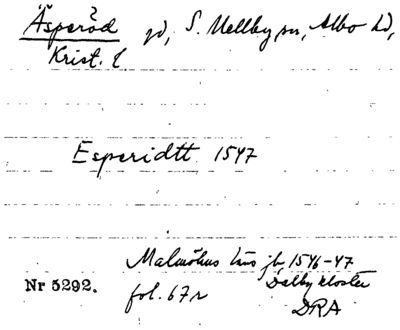 Äsperöd gd, S. Mellby sn, Albo hd,
Krist. l
Esperidtt 1547
Malmöhus läns jb 1546-47
Dalby kloster
Nr 5292. fol. 67r
DRA